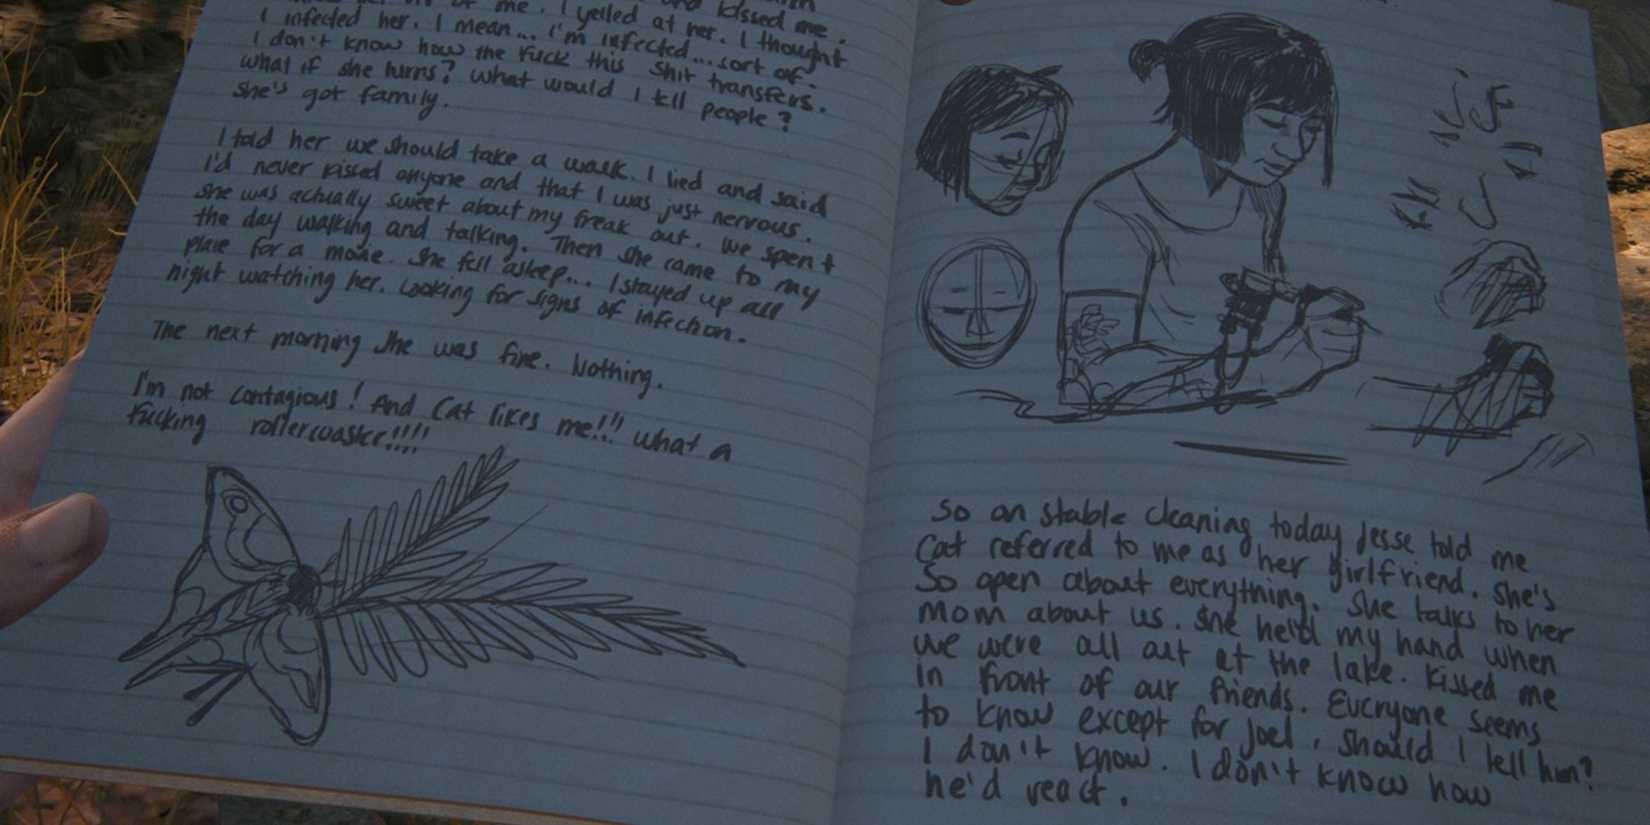 me. I yelled at her. I thought kissed me.
I infected her. I mean... i'm infected... sort of.
I don't know how the fuck this shit transfers.
what if she turns? what would I tell people?
she's got family.
I told her we should take a walk. I lied and said
I'd never kissed anyone and that I was just nervous.
she was actually sweet about my freak out. we spent
the day walking and talking. Then she came to my
place for a movie. she fell asleep... I stayed up all
night watching her. Looking for signs of infection.
The next morning she was fine. Nothing.
I'm not contagious! And Cat likes me!!! what a
fucking rollercoaster!!!!
So on stable cleaning today Jesse told me
Cat referred to me as her girlfriend. She's
So open about everything. She talks to her
Mom about us. She held my hand when
we were all out at the lake. Kissed me
in front of our friends. Everyone seems
to know except for Joel. Should I tell him?
I don't know. I don't know how
he'd react.